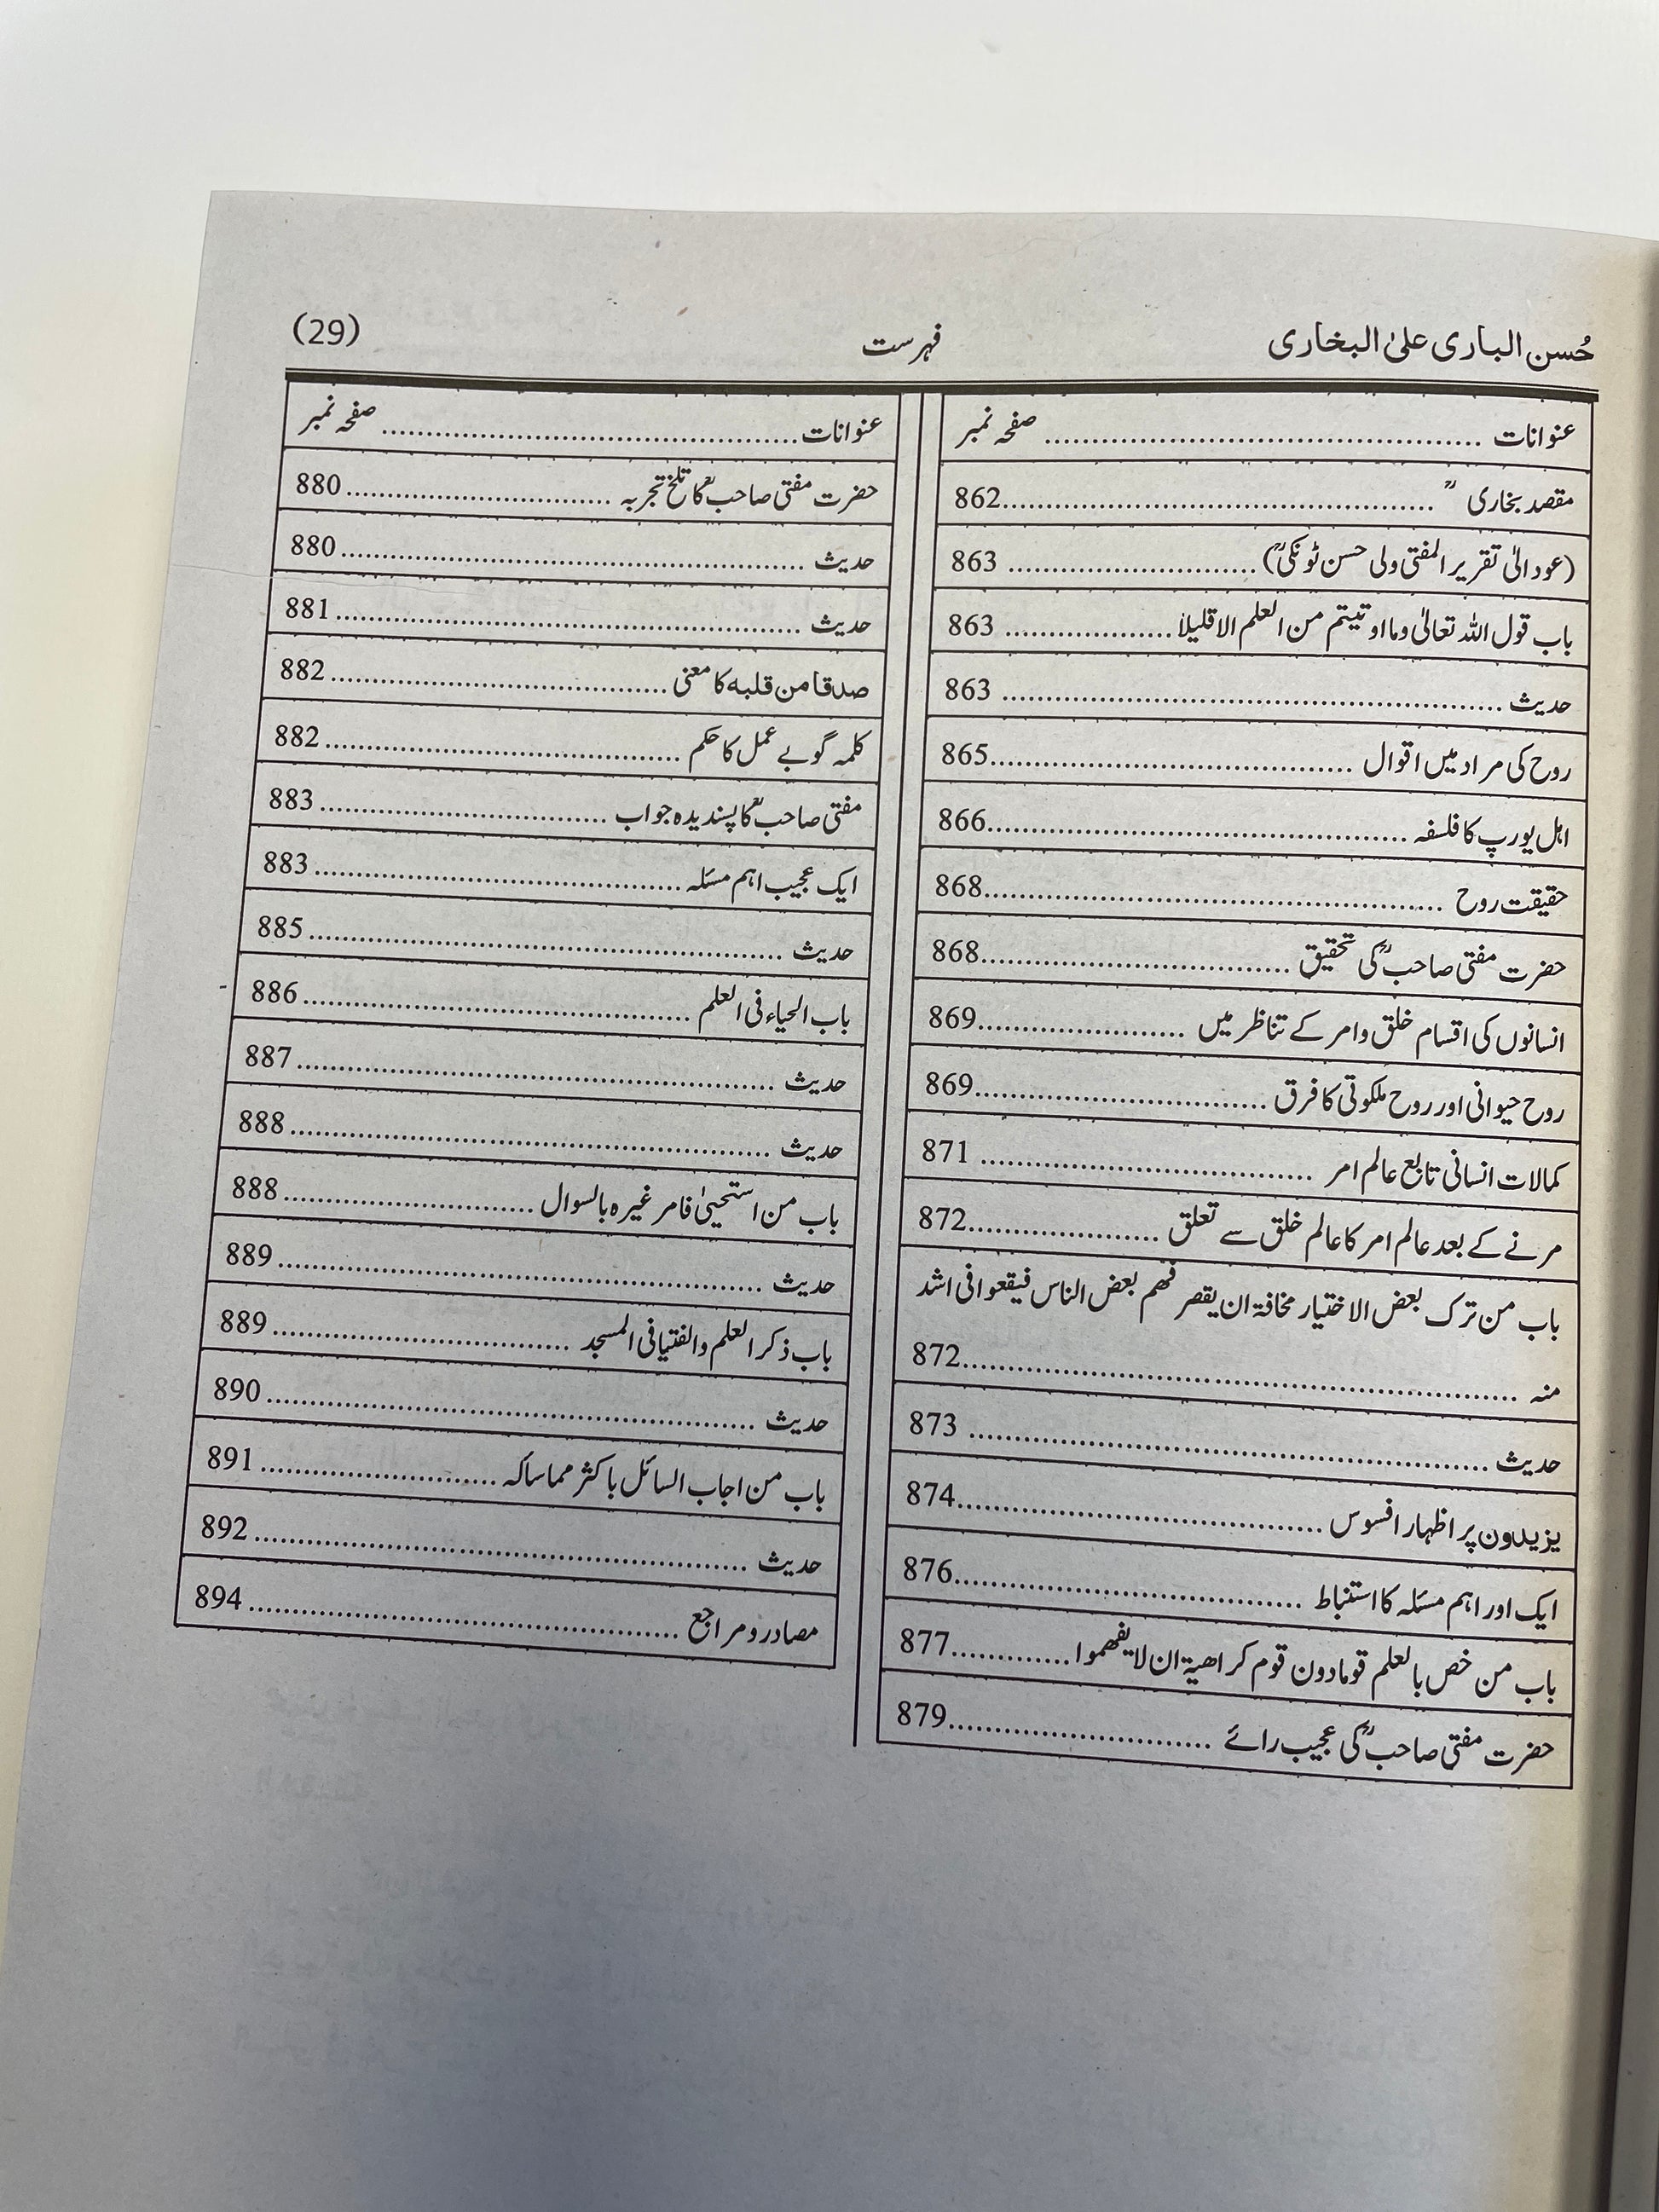 حُسن الباری علیٰ البخاری فہرست (29)
عنوانات ........ صفحہ نمبر
مقصد بخاریؒ ........ 862
(عود الیٰ تقریر المفتی ولی حسن ٹونکیؒ) ........ 863
باب قول اللہ تعالیٰ وما اوتیتم من العلم الا قلیلا ........ 863
حدیث ........ 863
روح کی مراد میں اقوال ........ 865
اہل یورپ کا فلسفہ ........ 866
حقیقت روح ........ 868
حضرت مفتی صاحبؒ کی تحقیق ........ 868
انسانوں کی اقسام خلق وامر کے تناظر میں ........ 869
روح حیوانی اور روح ملکوتی کا فرق ........ 869
کمالات انسانی تابع عالم امر ........ 871
مرنے کے بعد عالم امر کا عالم خلق سے تعلق ........ 872
باب من ترک بعض الاختیار مخافۃ ان یقصر فھم بعض الناس فیقعوا فی اشد
منہ ........ 872
حدیث ........ 873
یزیدون پر اظہار افسوس ........ 874
ایک اور اہم مسئلہ کا استنباط ........ 876
باب من خص بالعلم قوما دون قوم کراھیۃ ان لا یفھموا ........ 877
حضرت مفتی صاحبؒ کی عجیب رائے ........ 879
عنوانات ........ صفحہ نمبر
حضرت مفتی صاحبؒ کا تلخ تجربہ ........ 880
حدیث ........ 880
حدیث ........ 881
صدقا من قلبہ کا معنی ........ 882
کلمہ گو بے عمل کا حکم ........ 882
مفتی صاحبؒ کا پسندیدہ جواب ........ 883
ایک عجیب اہم مسئلہ ........ 883
حدیث ........ 885
باب الحیاء فی العلم ........ 886
حدیث ........ 887
حدیث ........ 888
باب من استحییٰ فامر غیرہ بالسوال ........ 888
حدیث ........ 889
باب ذکر العلم والفتیا فی المسجد ........ 889
حدیث ........ 890
باب من اجاب السائل باکثر مما سألہ ........ 891
حدیث ........ 892
مصادر و مراجع ........ 894